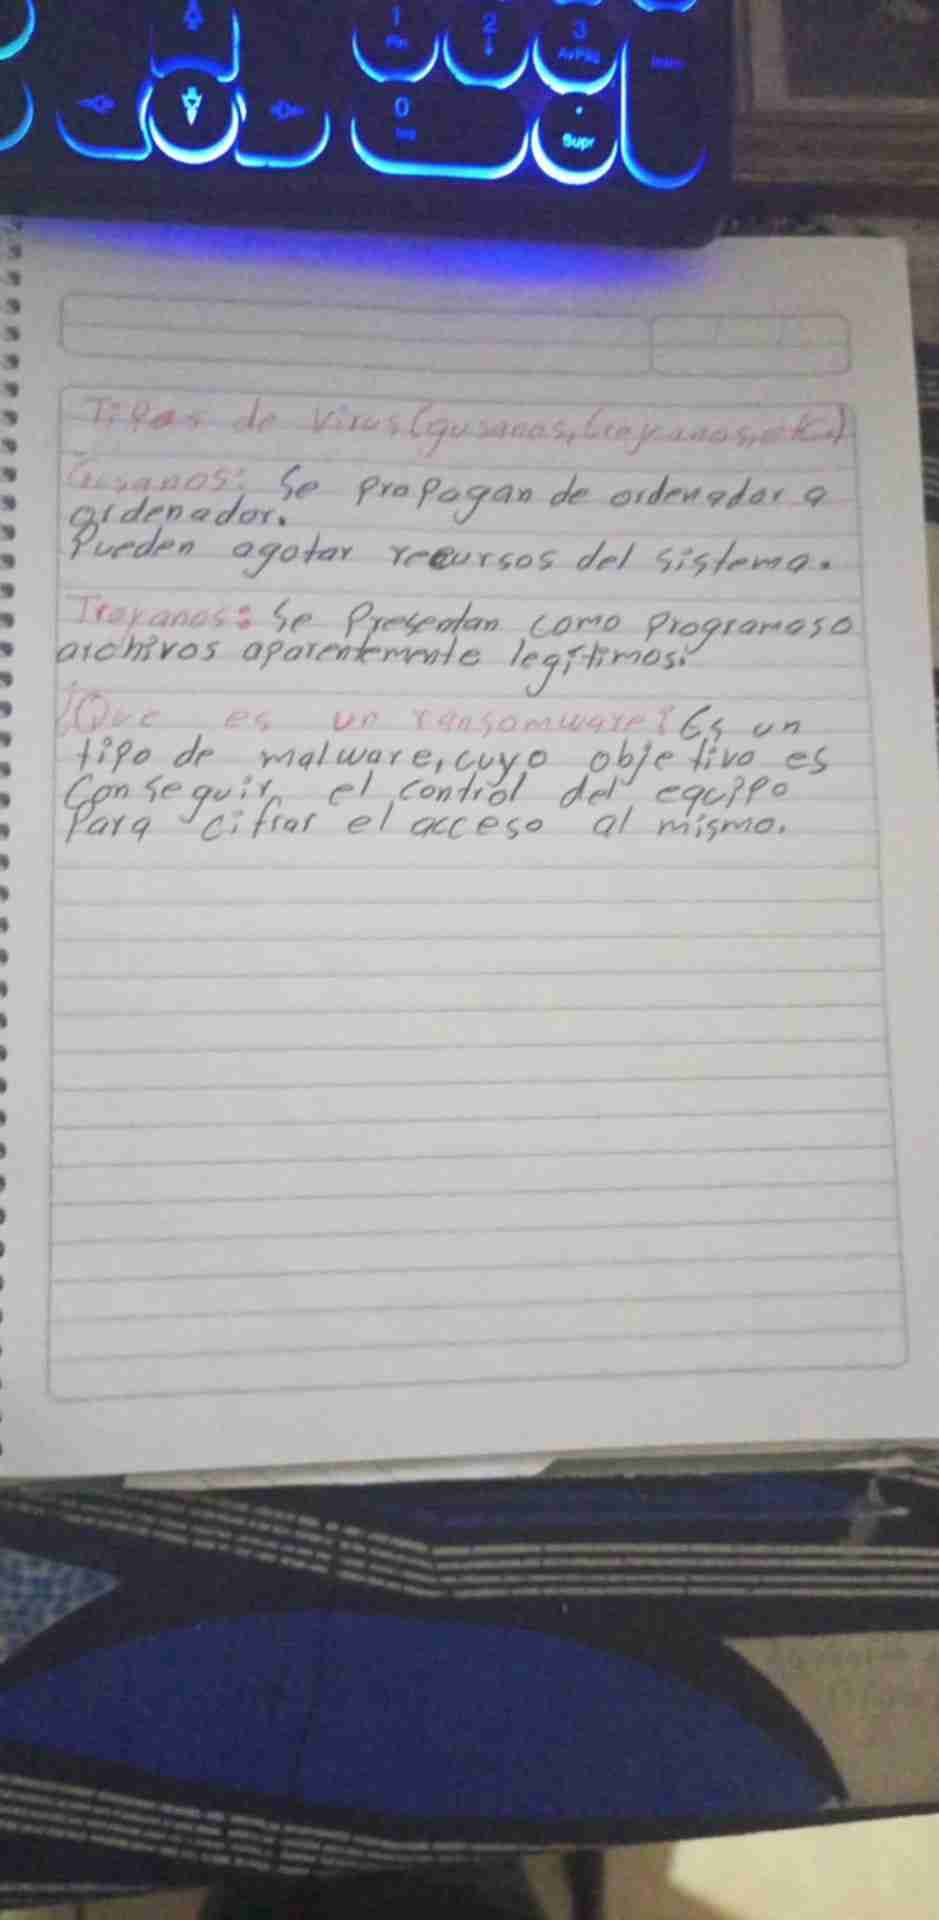 1
Fin
2
3
AvPág
0
Ins
.
Supr
Tipos de virus (gusanos, troyanos, etc.)
Gusanos: Se propagan de ordenador a
ordenador.
Pueden agotar recursos del sistema.
Troyanos: Se Presentan como Programas o
archivos aparentemente legítimos.
¿Que es un ransomware? Es un
tipo de malware, cuyo objetivo es
Conseguir el control del equipo
Para cifrar el acceso al mismo.